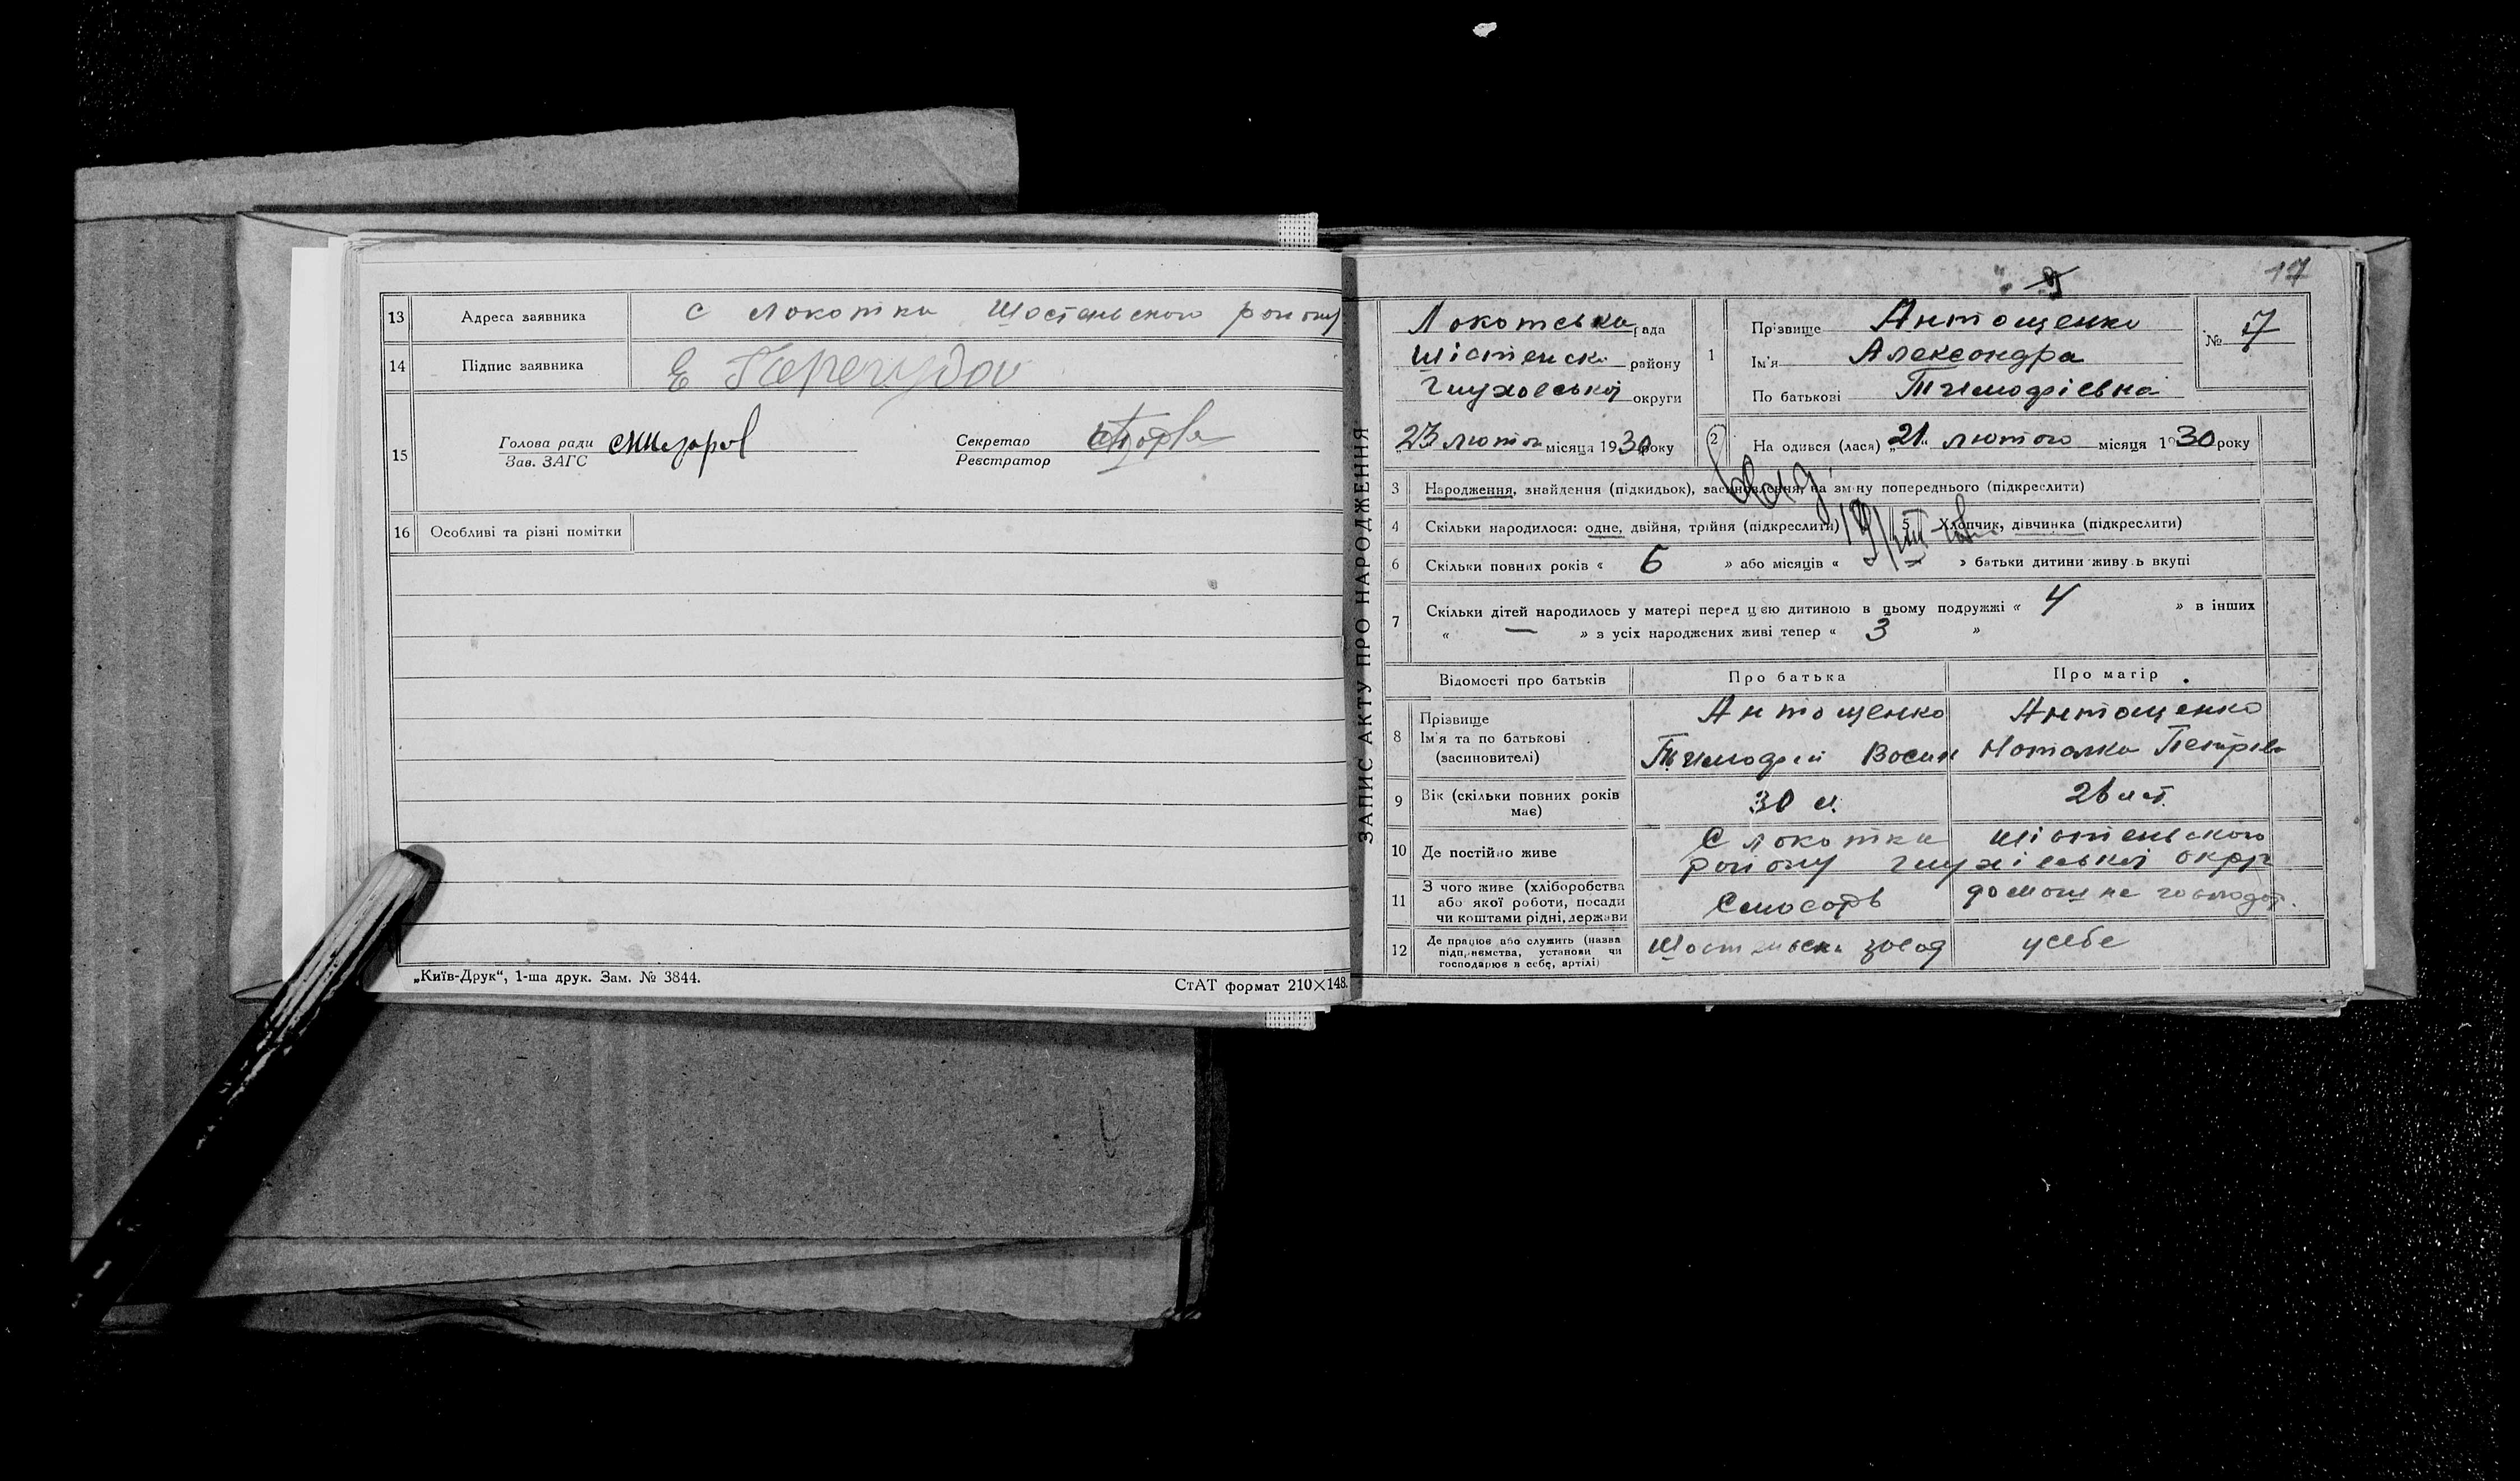 13 Адреса заявника с Локотки Шостенського району
14 Підпис заявника Е
15 Голова ради
Зав. ЗАГС
Секретар
Реєстратор
16 Особливі та різні помітки
„Київ-Друк“, 1-ша друк. Зам. № 3844.
СтАТ формат 210×148.
17
ЗАПИС АКТУ ПРО НАРОДЖЕННЯ
Локотська рада
Шістенськ району
Глухівської округи
„23 лютого місяця 1930 року
1 Прізвище Антощенко
Ім'я Александра
По батькові Тимофієвна
№ 7
2 На одився (лася) „21“ лютого місяця 1930 року
3 Народження, знайдення (підкидьок), засиновлення, на зміну попереднього (підкреслити)
4 Скільки народилося: одне, двійня, трійня (підкреслити)
5 Хлопчик, дівчинка (підкреслити)
6 Скільки повних років « 6 » або місяців « » батьки дитини живуть вкупі
7 Скільки дітей народилось у матері перед цією дитиною в цьому подружжі « 4 » в інших
« — » з усіх народжених живі тепер « 3 »
Відомості про батьків Про батька Про матір
8 Прізвище
Ім'я та по батькові
(засиновителі)
Антощенко
Тимофій Восил
Антощенко
Наталка Петрів
9 Вік (скільки повних років має) 30 л. 26 літ
10 Де постійно живе С Локотки Шістенського
району глухівської окрг
11 З чого живе (хліборобства
або якої роботи, посади
чи коштами рідні, держави
Слюсарь
домашнє господ.
12 Де працює або служить (назва
підприємства, установи чи
господарює в себе, артілі)
Шостенськ завод
у себе